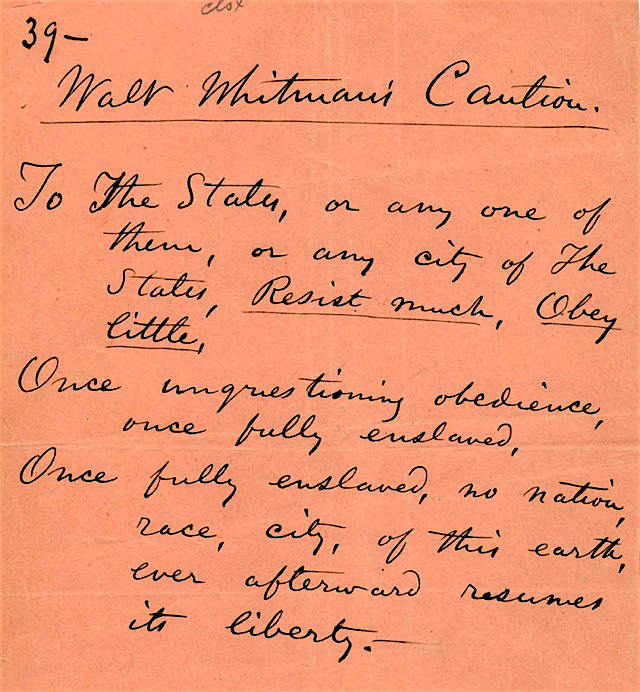 39—
Walt Whitman's Caution.
To The States, or any one of
them, or any city of The
States, Resist much, Obey
little,
Once unquestioning obedience,
once fully enslaved,
Once fully enslaved, no nation,
race, city, of this earth,
ever afterward resumes
its liberty.—